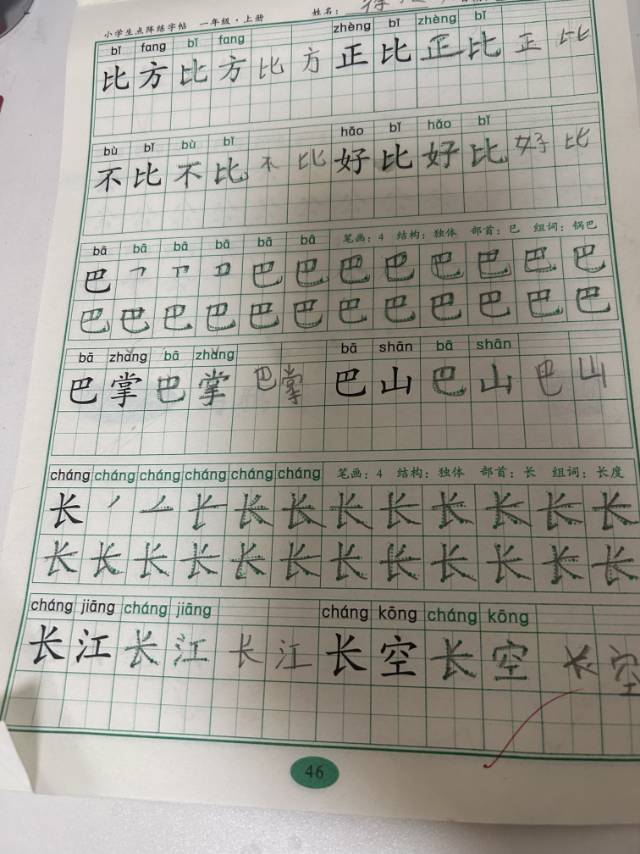 小学生点阵练字帖 一年级·上册 姓名：
bǐ fang bǐ fang zhèng bǐ zhèng bǐ
比 方 比 方 比 方 正 比 正 比 正 比
bù bǐ bù bǐ hǎo bǐ hǎo bǐ
不 比 不 比 不 比 好 比 好 比 好 比
bā bā bā bā bā bā 笔画：4 结构：独体 部首：巴 组词：锅巴
巴 巴 巴 巴 巴 巴 巴 巴 巴
巴 巴 巴 巴 巴 巴 巴 巴 巴 巴 巴 巴
bā zhǎng bā zhǎng bā shān bā shān
巴 掌 巴 掌 巴 掌 巴 山 巴 山 巴 山
cháng cháng cháng cháng cháng cháng 笔画：4 结构：独体 部首：长 组词：长度
长 长 长 长 长 长 长 长 长 长
长 长 长 长 长 长 长 长 长 长 长 长
cháng jiāng cháng jiāng cháng kōng cháng kōng
长 江 长 江 长 江 长 空 长 空 长 空
46